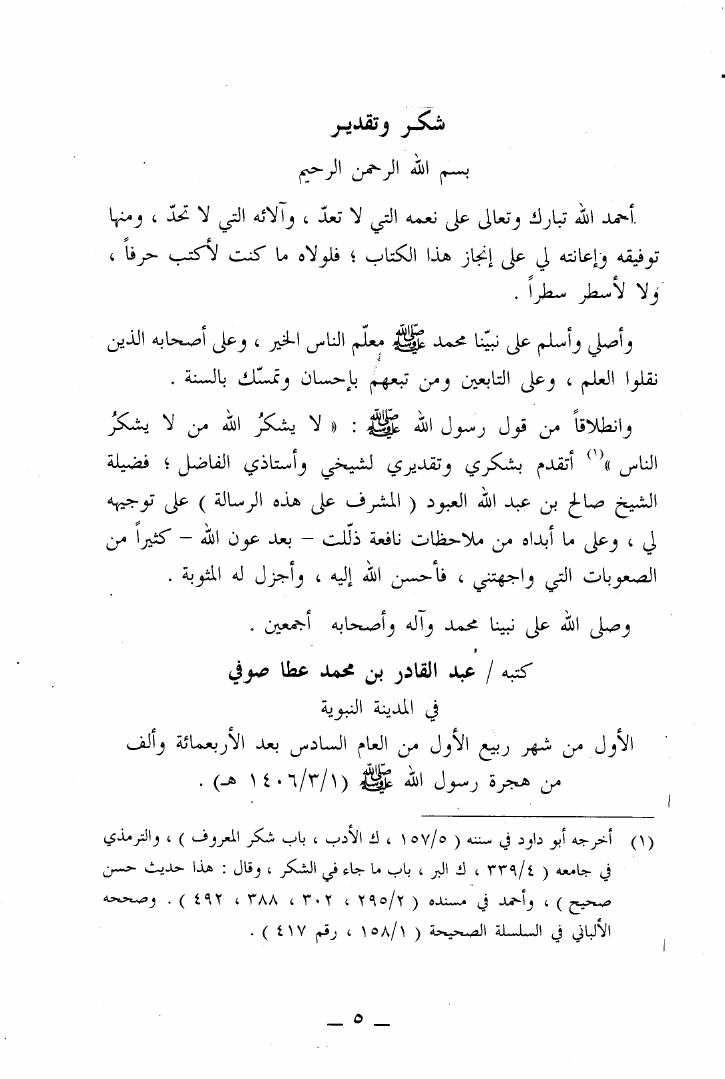 شكر وتقدير
بسم الله الرحمن الرحيم
أحمد الله تبارك وتعالى على نعمه التي لا تعدّ ، وآلائه التي لا تحدّ ، ومنها
توفيقه وإعانته لي على إنجاز هذا الكتاب ؛ فلولاه ما كنت لأكتب حرفاً ،
ولا لأسطر سطراً .
وأصلي وأسلم على نبيّنا محمد ﷺ معلّم الناس الخير ، وعلى أصحابه الذين
نقلوا العلم ، وعلى التابعين ومن تبعهم بإحسان وتمسّك بالسنة .
وانطلاقاً من قول رسول الله ﷺ : « لا يشكرُ الله من لا يشكرُ
الناس »(١) أتقدم بشكري وتقديري لشيخي وأستاذي الفاضل ؛ فضيلة
الشيخ صالح بن عبد الله العبود ( المشرف على هذه الرسالة ) على توجيهه
لي ، وعلى ما أبداه من ملاحظات نافعة ذلّلت – بعد عون الله – كثيراً من
الصعوبات التي واجهتني ، فأحسن الله إليه ، وأجزل له المثوبة .
وصلى الله على نبينا محمد وآله وأصحابه أجمعين .
كتبه / عبد القادر بن محمد عطا صوفي
في المدينة النبوية
الأول من شهر ربيع الأول من العام السادس بعد الأربعمائة وألف
من هجرة رسول الله ﷺ (١٤٠٦/٣/١ هـ) .
(١) أخرجه أبو داود في سننه ( ١٥٧/٥ ، ك الأدب ، باب شكر المعروف ) ، والترمذي
في جامعه ( ٣٣٩/٤ ، ك البر ، باب ما جاء في الشكر ، وقال : هذا حديث حسن
صحيح ) ، وأحمد في مسنده ( ٢٩٥/٢ ، ٣٠٢ ، ٣٨٨ ، ٤٩٢ ) . وصححه
الألباني في السلسلة الصحيحة ( ١٥٨/١ ، رقم ٤١٧ ) .
– ٥ –